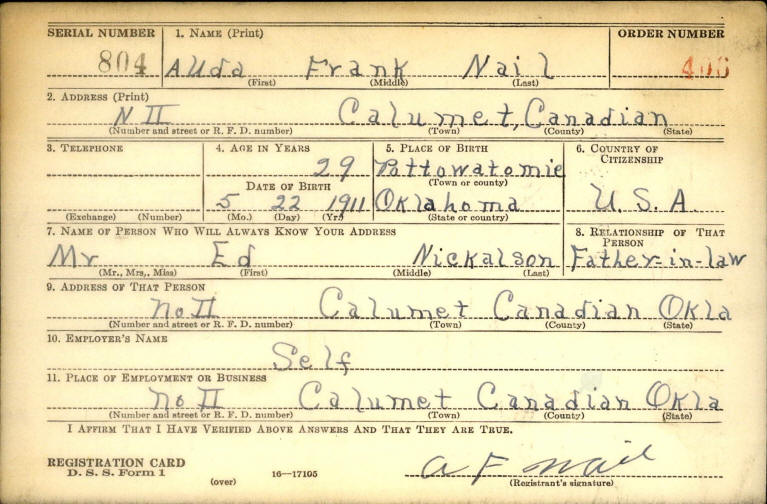 SERIAL NUMBER 1. NAME (Print) ORDER NUMBER
804 Auda Frank Nail 406
(First) (Middle) (Last)
2. ADDRESS (Print)
N II Calumet, Canadian
(Number and street or R. F. D. number) (Town) (County) (State)
3. TELEPHONE 4. AGE IN YEARS 5. PLACE OF BIRTH 6. COUNTRY OF CITIZENSHIP
29 Pottowatomie
(Town or county)
DATE OF BIRTH
5 22 1911 Oklahoma U. S. A.
(Exchange) (Number) (Mo.) (Day) (Yr.) (State or country)
7. NAME OF PERSON WHO WILL ALWAYS KNOW YOUR ADDRESS 8. RELATIONSHIP OF THAT PERSON
Mr Ed Nickalson Father-in-law
(Mr., Mrs., Miss) (First) (Middle) (Last)
9. ADDRESS OF THAT PERSON
No II Calumet Canadian Okla
(Number and street or R. F. D. number) (Town) (County) (State)
10. EMPLOYER'S NAME
Self
11. PLACE OF EMPLOYMENT OR BUSINESS
No II Calumet Canadian Okla
(Number and street or R. F. D. number) (Town) (County) (State)
I AFFIRM THAT I HAVE VERIFIED ABOVE ANSWERS AND THAT THEY ARE TRUE.
REGISTRATION CARD
D. S. S. Form 1 (over) 16—17105 A F Nail
(Registrant's signature)